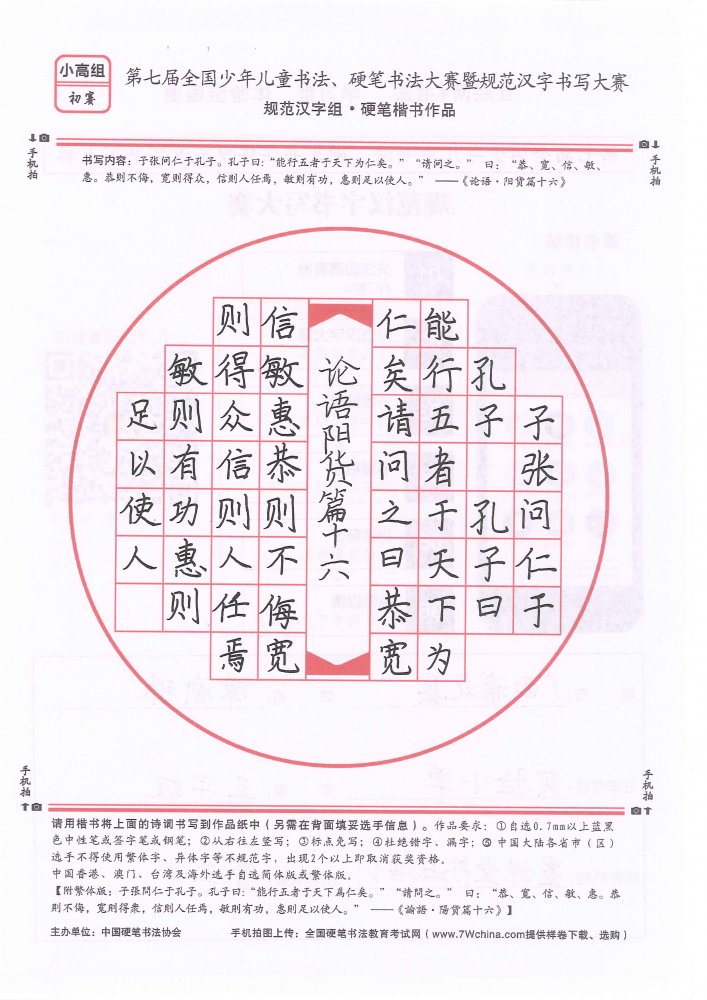 小高组
初赛
第七届全国少年儿童书法、硬笔书法大赛暨规范汉字书写大赛
规范汉字组·硬笔楷书作品
手机拍
手机拍
书写内容：子张问仁于孔子。孔子曰：“能行五者于天下为仁矣。”“请问之。”曰：“恭、宽、信、敏、
惠。恭则不侮，宽则得众，信则人任焉，敏则有功，惠则足以使人。”——《论语·阳货篇十六》
子张问仁于
孔子孔子曰
能行五者于天下为
仁矣请问之曰恭宽
信敏惠恭则不侮宽
则得众信则人任焉
敏则有功惠则
足以使人
论语阳货篇十六
手机拍
手机拍
请用楷书将上面的诗词书写到作品纸中（另需在背面填妥选手信息）。作品要求：①自选0.7mm以上蓝黑
色中性笔或签字笔或钢笔；②从右往左竖写；③标点免写；④杜绝错字、漏字；⑤中国大陆各省市（区）
选手不得使用繁体字、异体字等不规范字，出现2个以上即取消获奖资格。
中国香港、澳门、台湾及海外选手自选简体版或繁体版。
【附繁体版：子張問仁于孔子。孔子曰：“能行五者于天下爲仁矣。”“請問之。”曰：“恭、寬、信、敏、惠。恭
則不侮，寬則得衆，信則人任焉，敏則有功，惠則足以使人。”——《論語·陽貨篇十六》】
主办单位：中国硬笔书法协会
手机拍图上传：全国硬笔书法教育考试网（www.7Wchina.com提供样卷下载、选购）